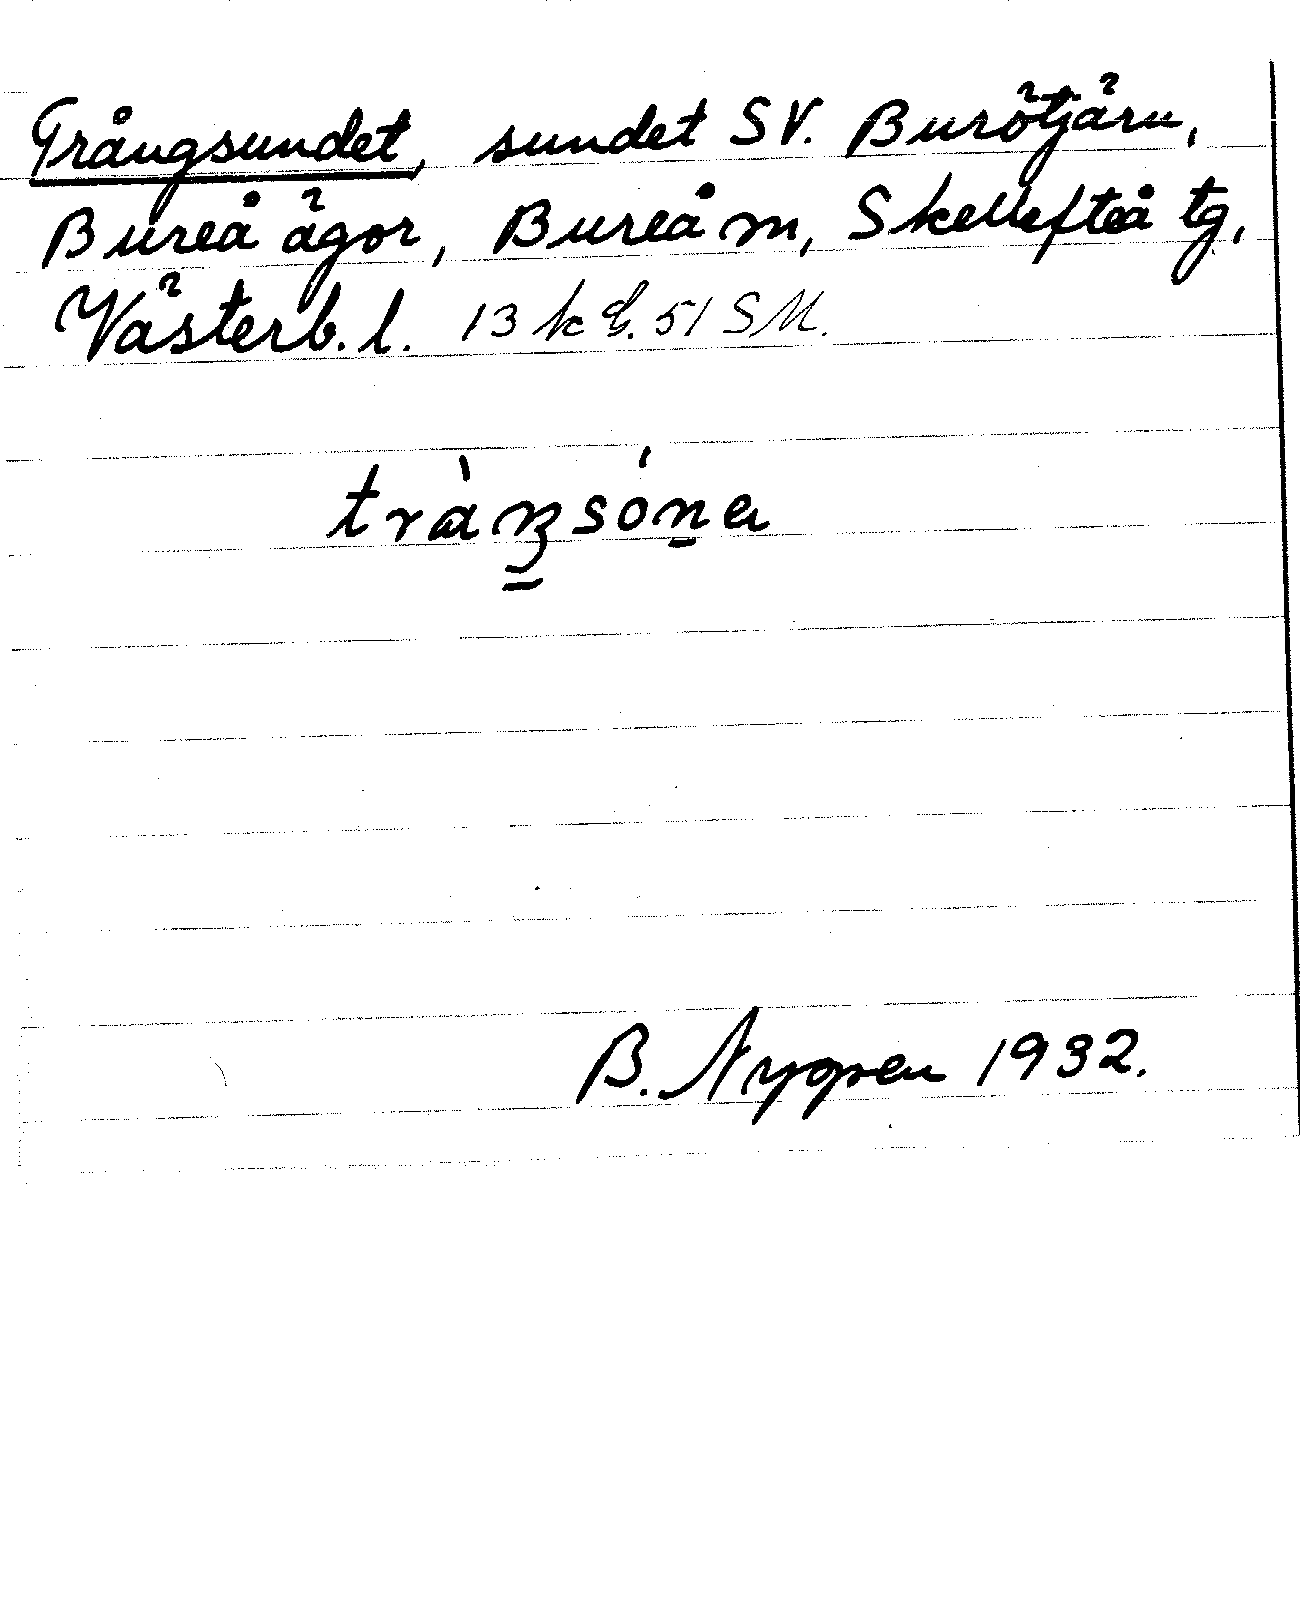 Trångsundet, sundet SV. Burötjärn,
Bureå ägor, Bureå m, Skellefteå tg,
Västerb. l. 13 k E. 51 SM.
B. Nygren 1932.